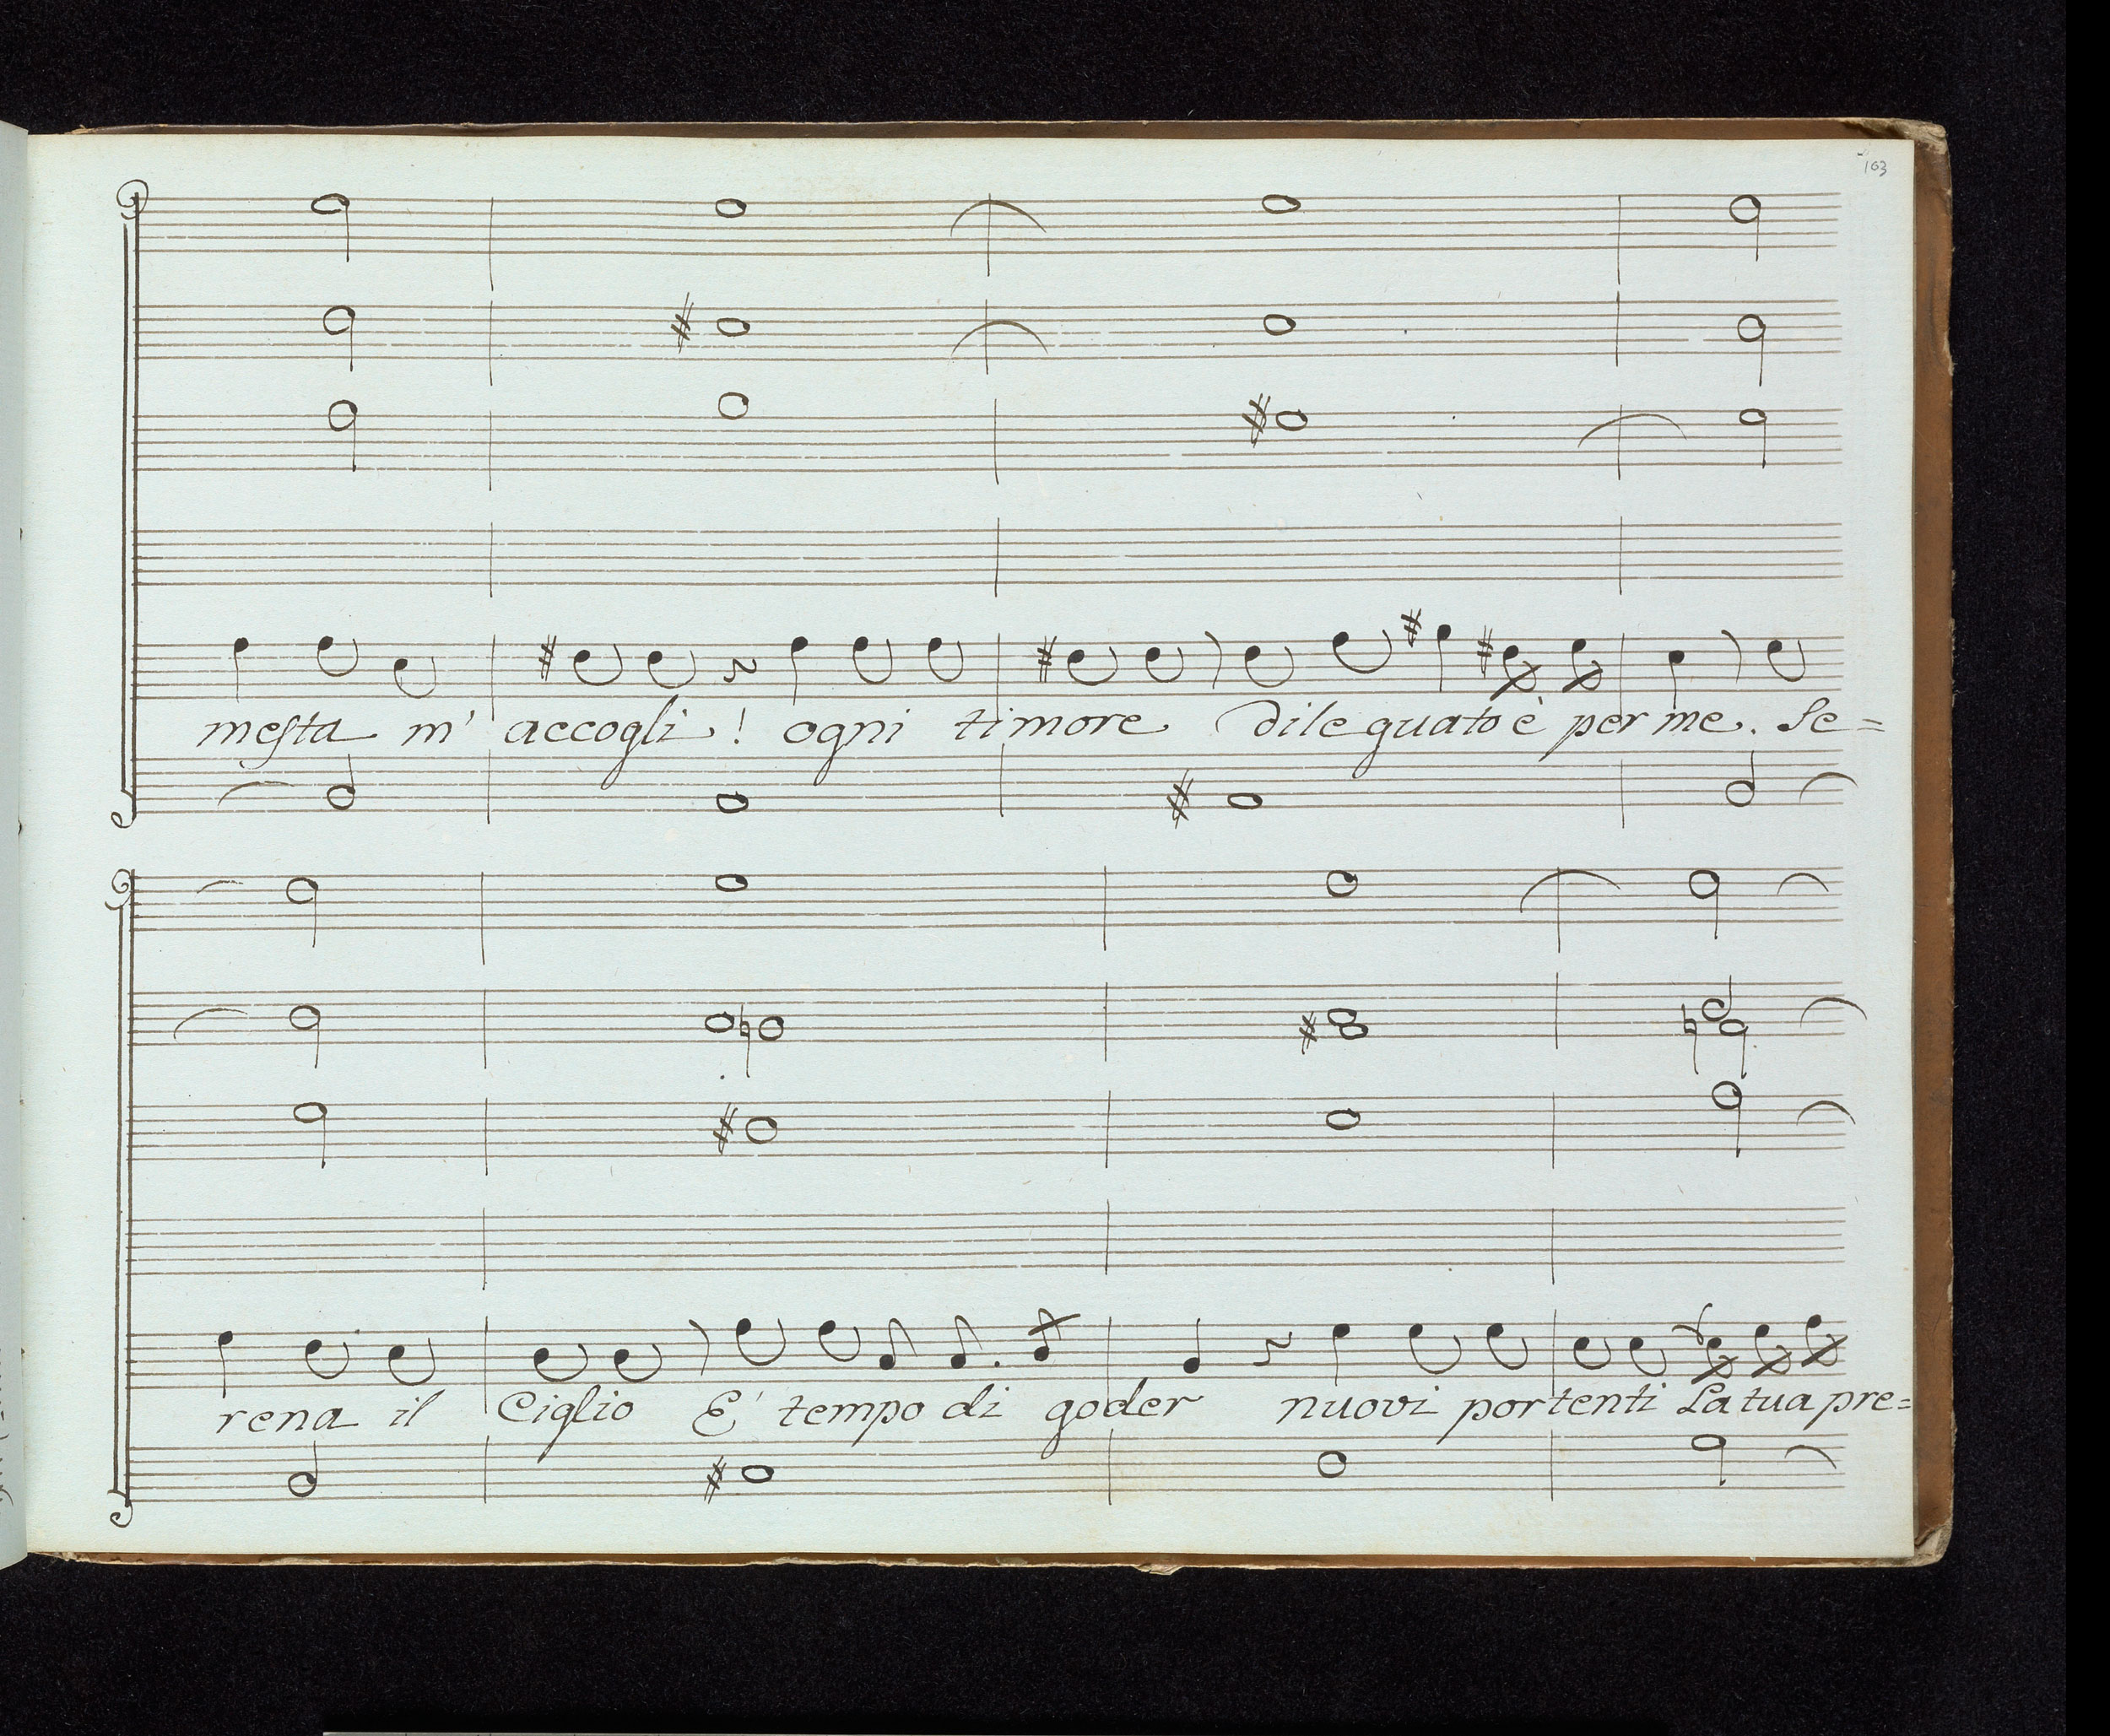 103
mesta m' accogli! ogni timore dileguato è per me. Se=
rena il Ciglio E' tempo di goder nuovi portenti La tua pre=